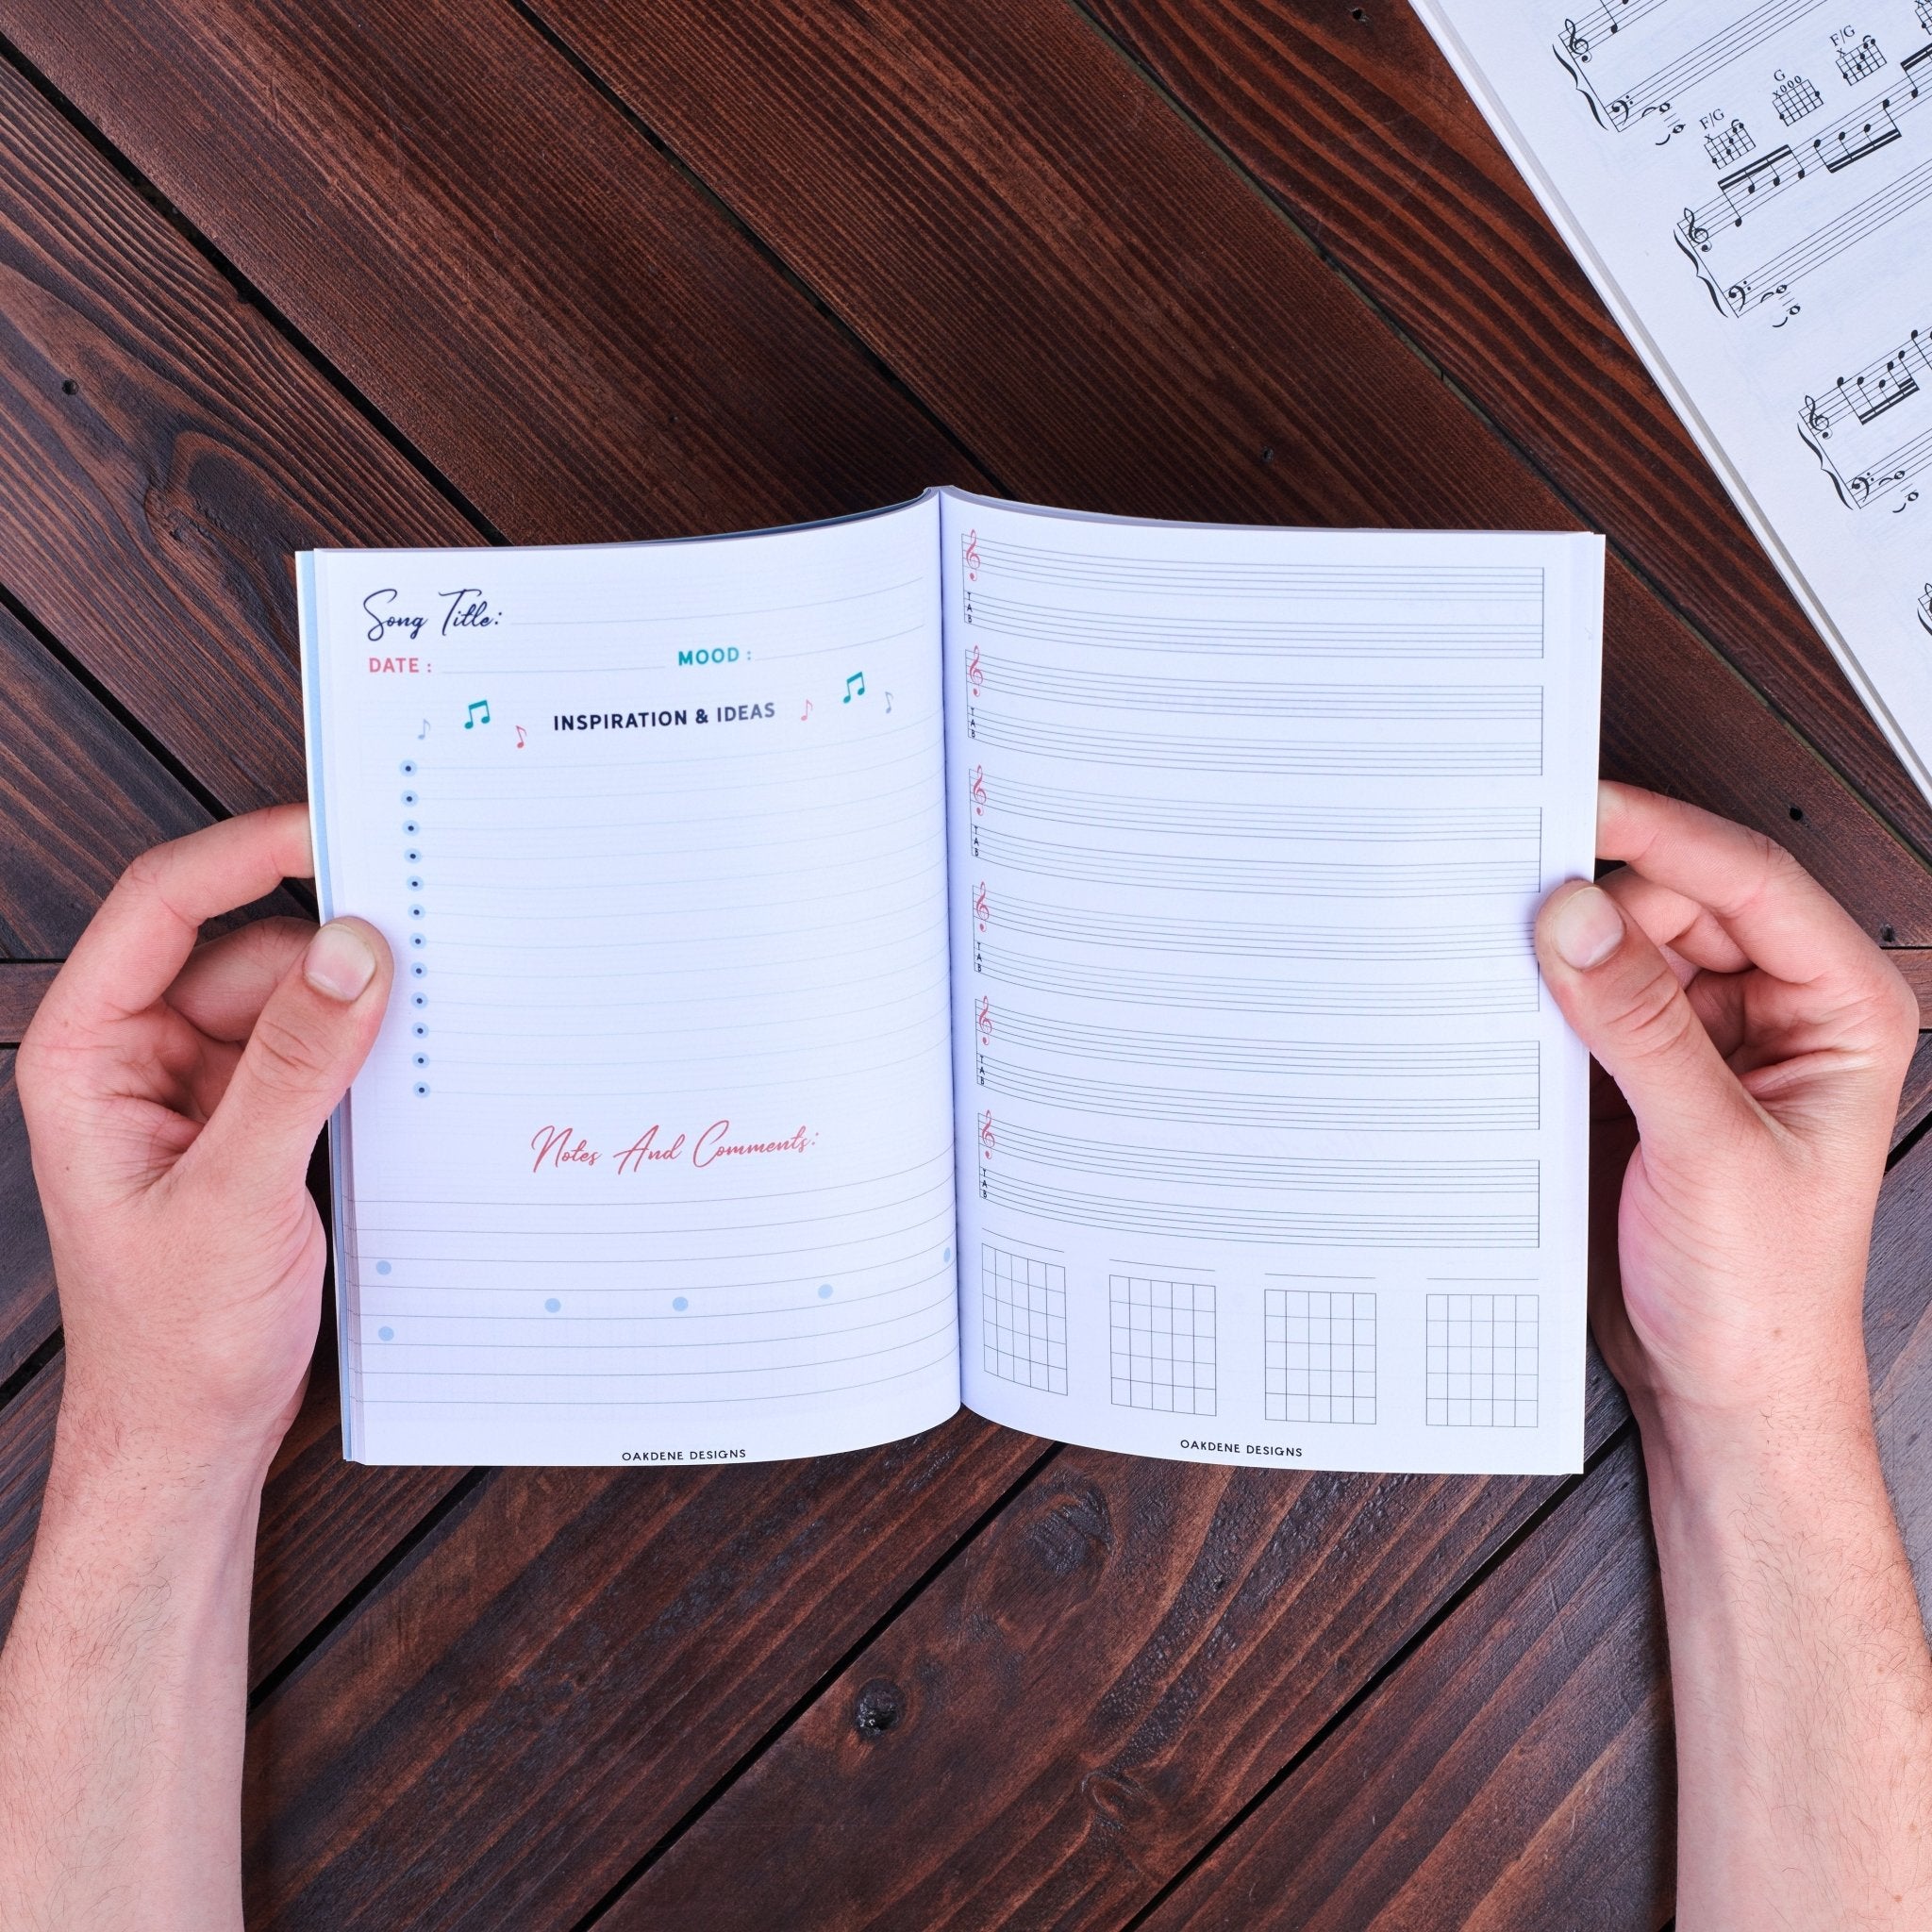 Song Title:
DATE :
MOOD :
INSPIRATION & IDEAS
Notes And Comments:
OAKDENE DESIGNS
TAB
TAB
TAB
TAB
TAB
TAB
OAKDENE DESIGNS
F/G
G
F/G